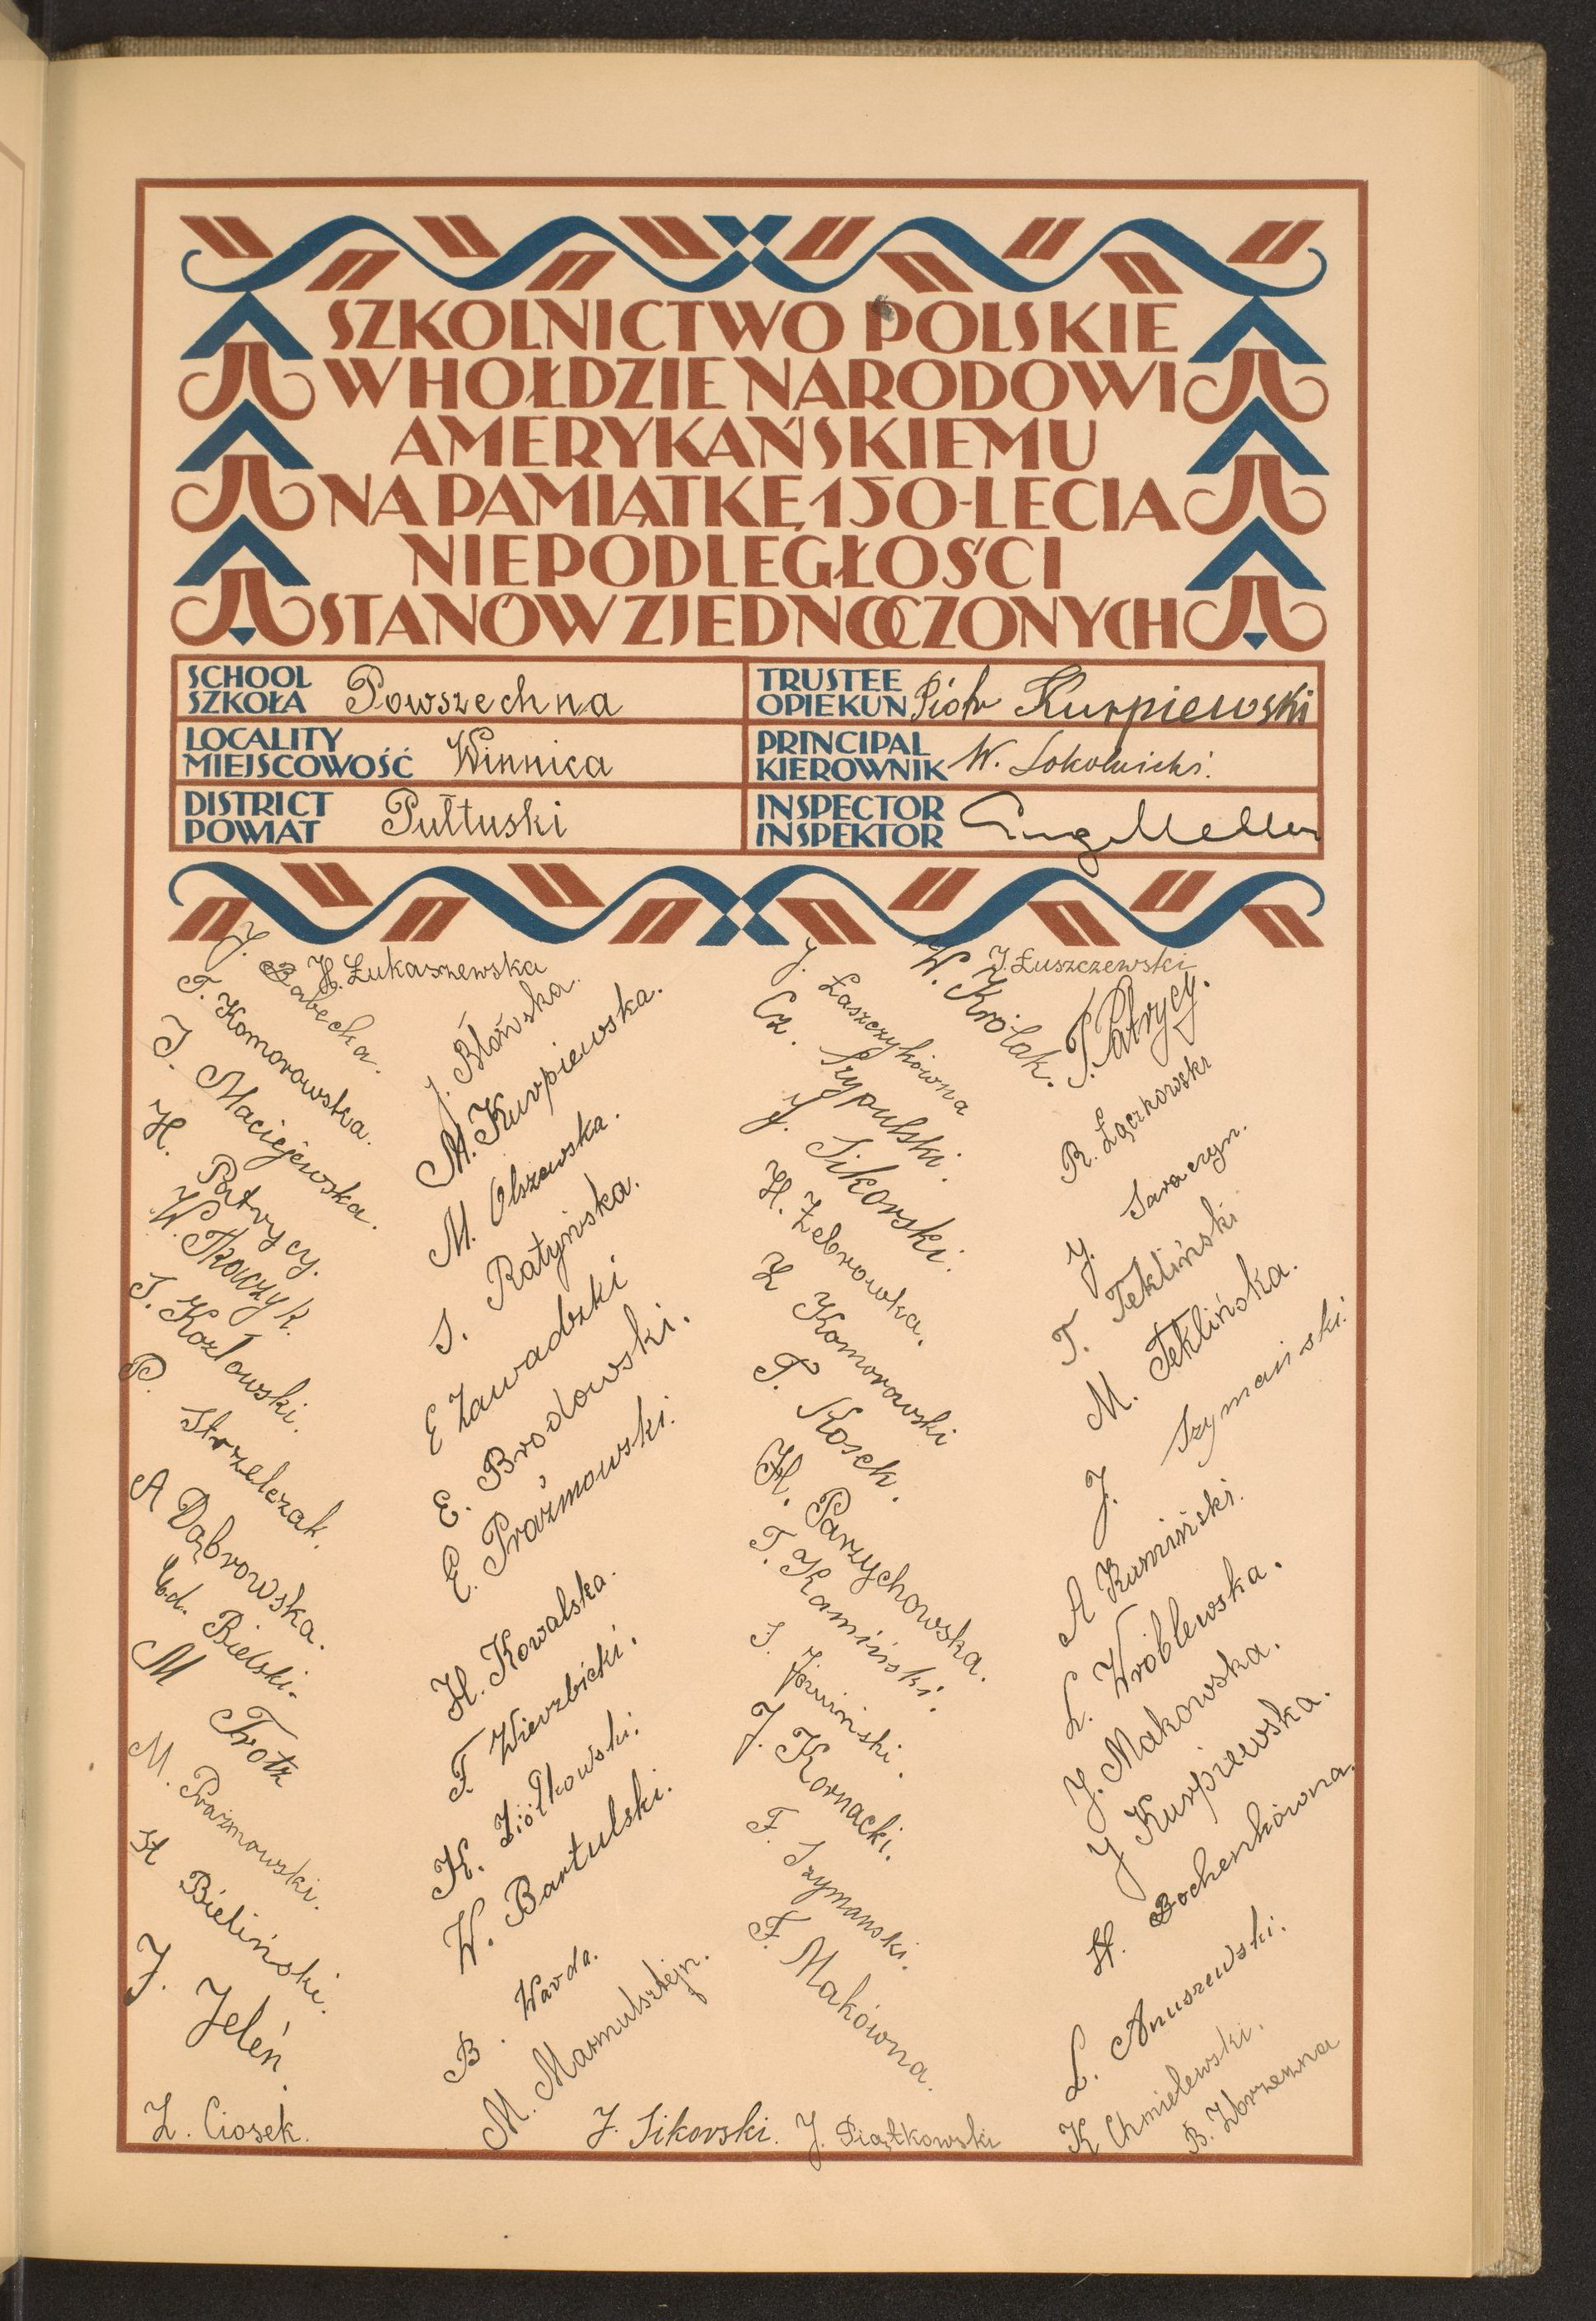 SZKOLNICTWO POLSKIE
W HOŁDZIE NARODOWI
AMERYKAŃSKIEMU
NA PAMIĄTKĘ 150-LECIA
NIEPODLEGŁOŚCI
STANÓW ZJEDNOCZONYCH
SCHOOL
SZKOŁA Powszechna
TRUSTEE
OPIEKUN Piotr Kurpiewski
LOCALITY
MIEJSCOWOŚĆ Winnica
PRINCIPAL
KIEROWNIK W. Sokolnicki.
DISTRICT
POWIAT Pułtuski
INSPECTOR
INSPEKTOR
J. Babecka.
H. Łukaszewska
T. Komorowska.
I. Maciejewska.
H. Patrycy.
W. Tkaczyk.
J. Kozłowski.
P. Strzelczak.
A Dąbrowska.
Ed. Bielski.
M Trotz
M. Prażmowski.
St Bieliński.
J. Jeleń.
Z. Ciosek.
J. Błońska.
M. Kurpiewska.
M. Olszewska.
S. Ratyńska.
E Zawadzki
E. Brodowski.
E. Prażmowski.
H. Kowalska.
F. Wierzbicki.
K. Ziółkowski.
W. Bartulski.
B. Warda.
M. Marmulsztejn.
J. Sikorski.
J. Łaszczykówna
Cz. Szypulski.
J. Sikorski.
H. Żebrowka.
Z Komorowski
T. Kosek.
H. Parzychowska.
T. Kamiński.
S. Józwiński.
J. Kornacki.
F. Szymanski.
F. Makówna.
J. Piątkowski
W. Królak.
J. Łuszczewski
T. Patrycy.
R. Łączkowski
J. Saraczyn.
T. Tekliński
M. Teklińska.
J. Szymański.
A Kumiński.
L. Wróblewska.
J. Makowska.
J Kurpiewska.
H. Bochenkówna.
L. Anuszewski.
K Chmielewski.
B. Zbrzezna